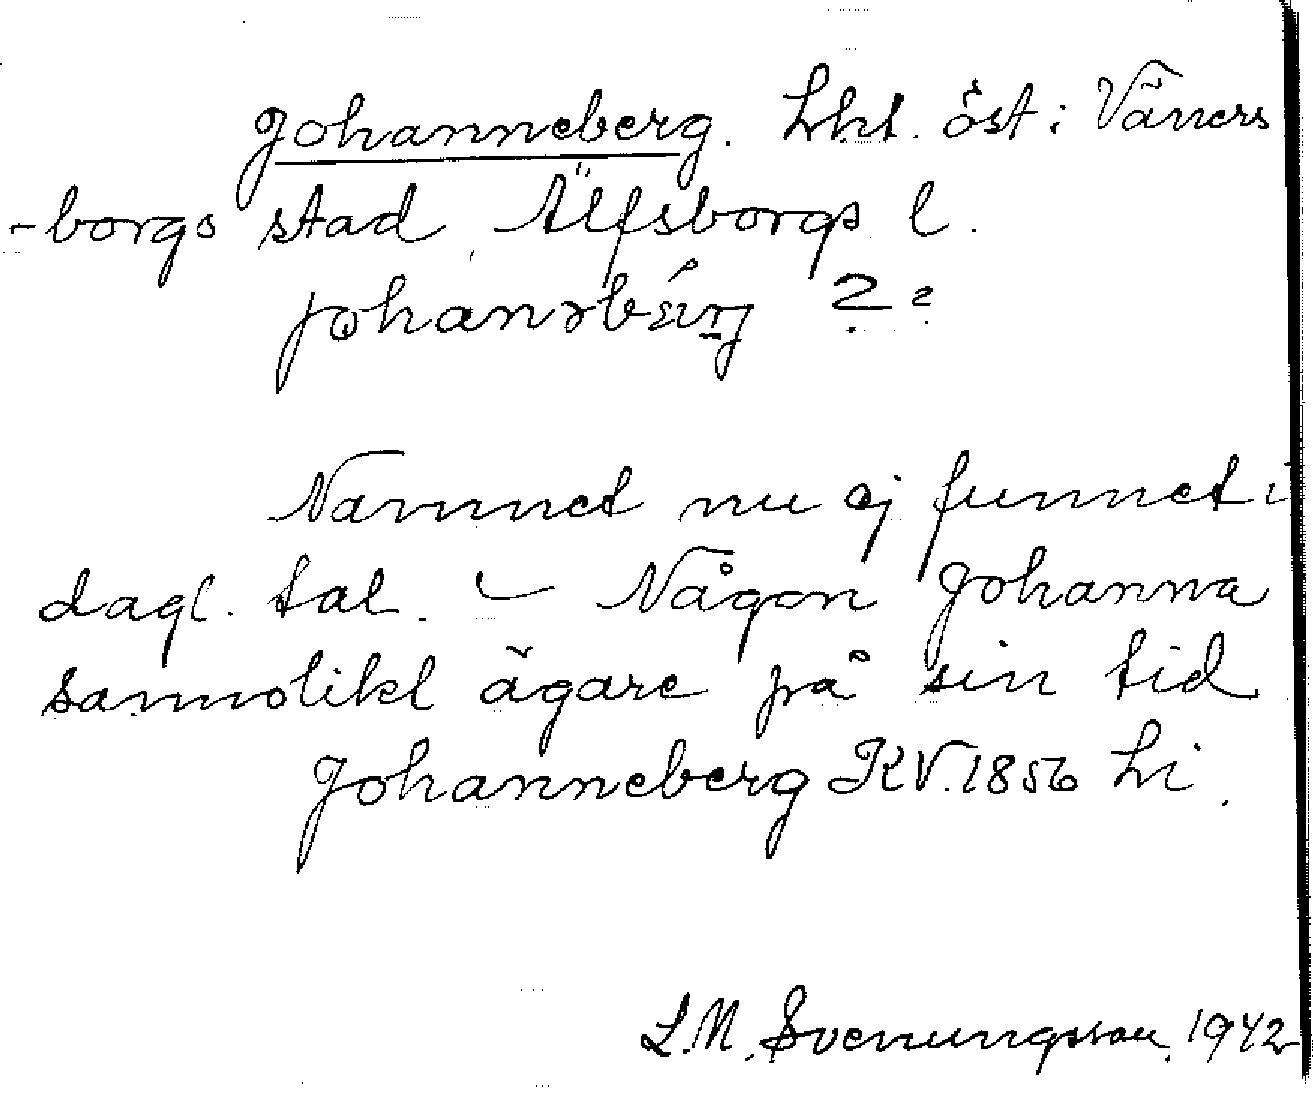 Johanneberg. Lht. öst i Väners
-borgs stad, Älfsborgs l.
johanəbæ̀rj 2e
Namnet nu ej funnet i
dagl. tal. – Någon Johanna
sannolikt ägare på sin tid
Johanneberg KV. 1856 Li.
L.M. Svenungsson, 1942